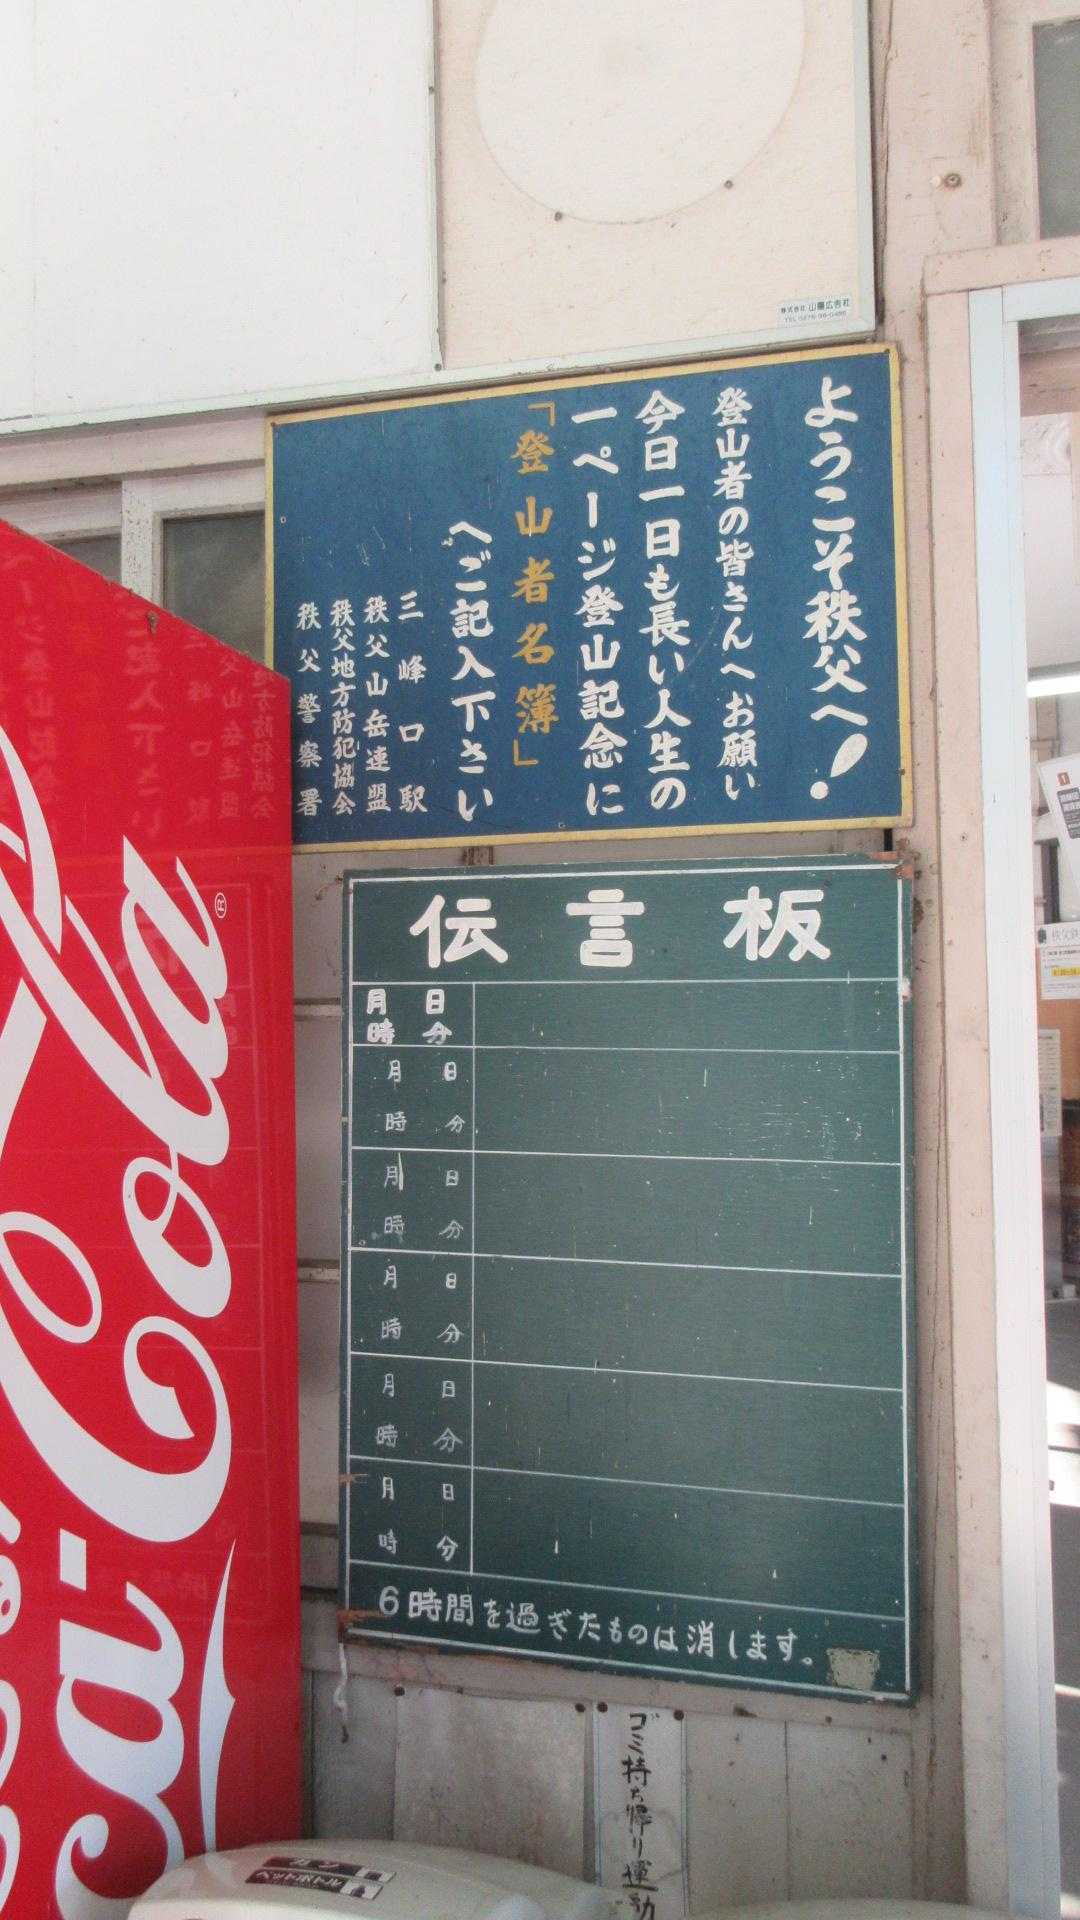 株式会社 山陽広告社
ようこそ秩父へ!
登山者の皆さんへお願い
今日一日も長い人生の
一ページ登山記念に
「登山者名簿」
へご記入下さい
三峰口駅
秩父山岳連盟
秩父地方防犯協会
秩父警察署
伝言板
月 日
時 分
月 日
時 分
月 日
時 分
月 日
時 分
月 日
時 分
月 日
時 分
6時間を過ぎたものは消します。
ゴミ持ち帰り運動
Coca-Cola
®
カン
ペットボトル